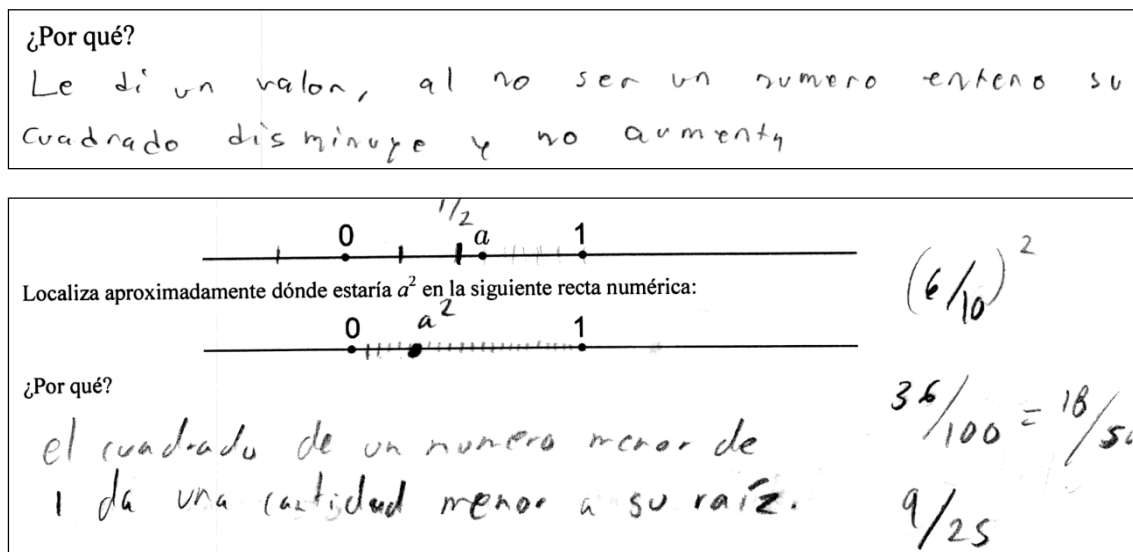 ¿Por qué?
Le di un valor, al no ser un numero entero su
cuadrado disminuye y no aumenta
1/2
0 a 1
Localiza aproximadamente dónde estaría a² en la siguiente recta numérica:
0 a² 1
¿Por qué?
el cuadrado de un numero menor de
1 da una cantidad menor a su raíz.
(6/10)²
36/100 = 18/50
9/25